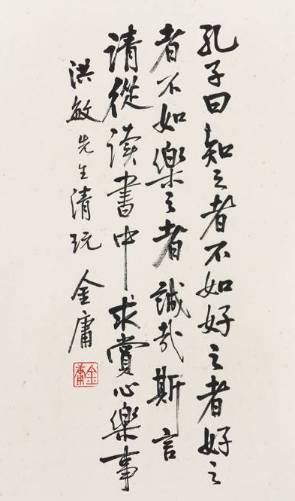 孔子曰知之者不如好之者好之
者不如樂之者誠哉斯言
請從读書中求賞心樂事
洪敏先生清玩 金庸
金庸